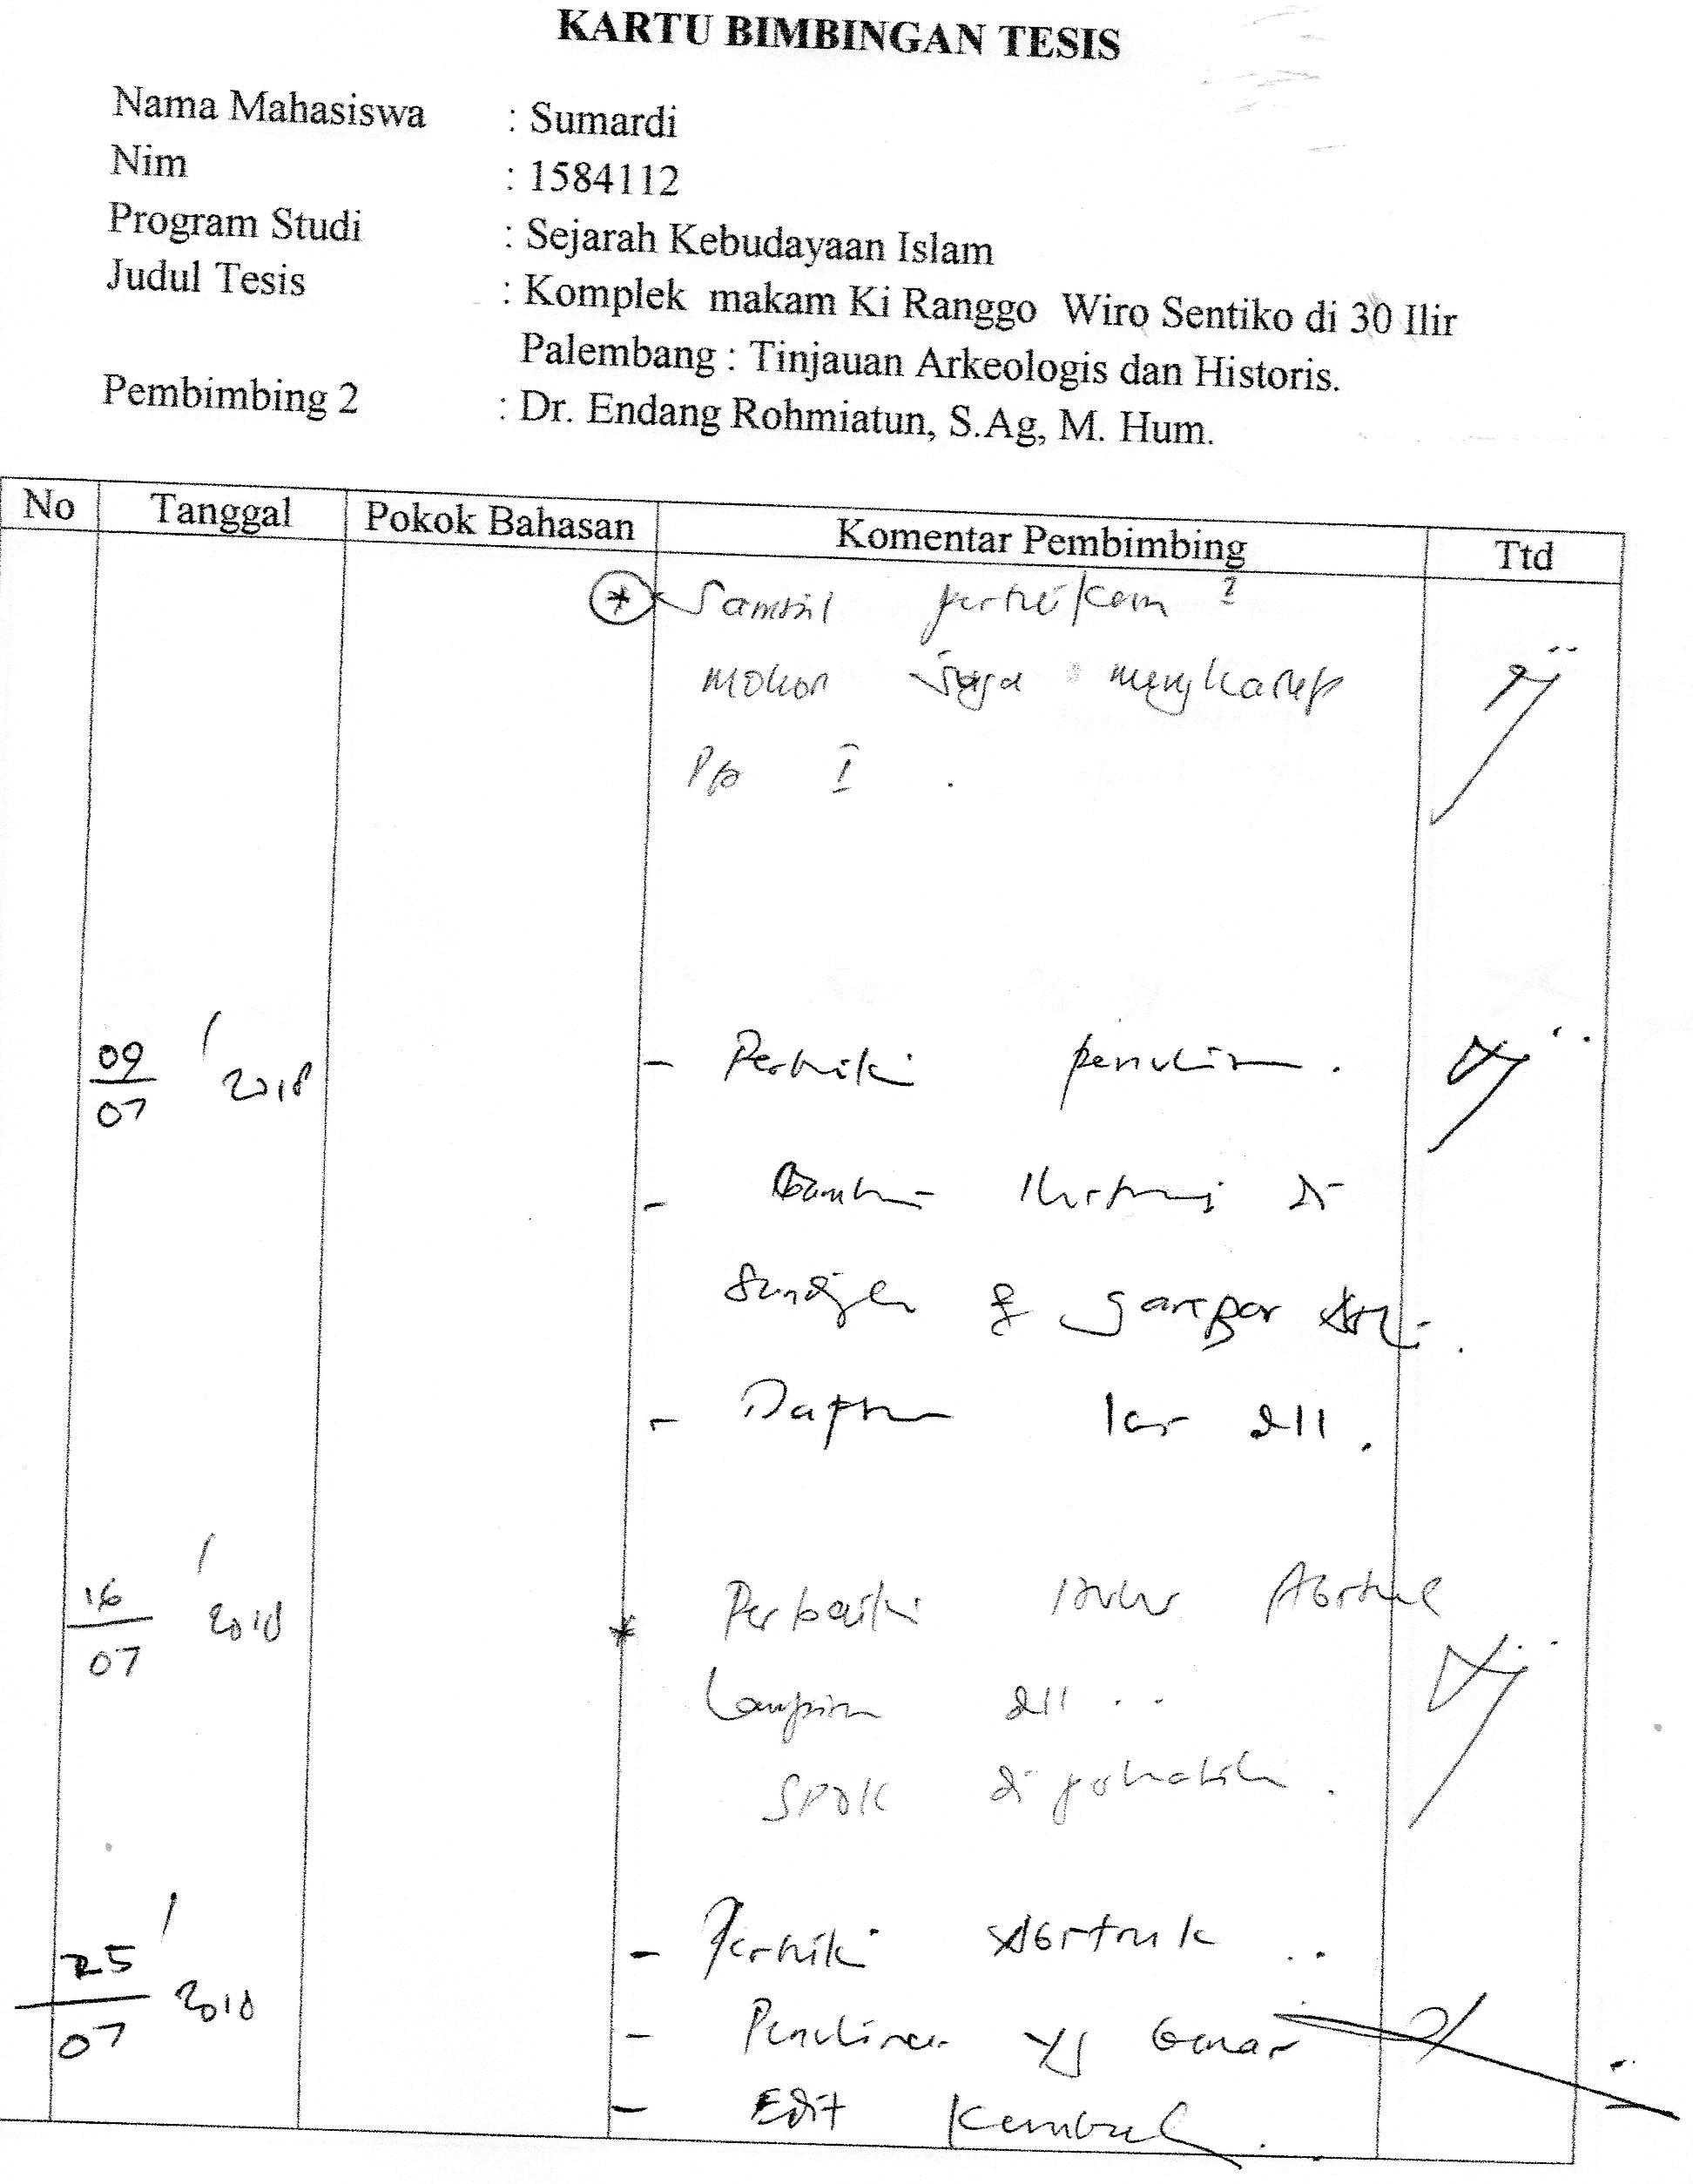 KARTU BIMBINGAN TESIS
Nama Mahasiswa : Sumardi
Nim : 1584112
Program Studi : Sejarah Kebudayaan Islam
Judul Tesis : Komplek makam Ki Ranggo Wiro Sentiko di 30 Ilir
Palembang : Tinjauan Arkeologis dan Historis.
Pembimbing 2 : Dr. Endang Rohmiatun, S.Ag, M. Hum.
No Tanggal Pokok Bahasan Komentar Pembimbing Ttd
* Sambil
mohon juga menghadap
I .
09/07/2018 - Perbaiki penulisan.
- di
& gambar
- Daftar isi dll.
16/07/2018 * Perbaiki Abstrak
Lampiran dll ..
SPOK di perhatikan.
25/07/2018 - Perbaiki Abstrak ..
- Penulisan yg benar
- Edit kembali.